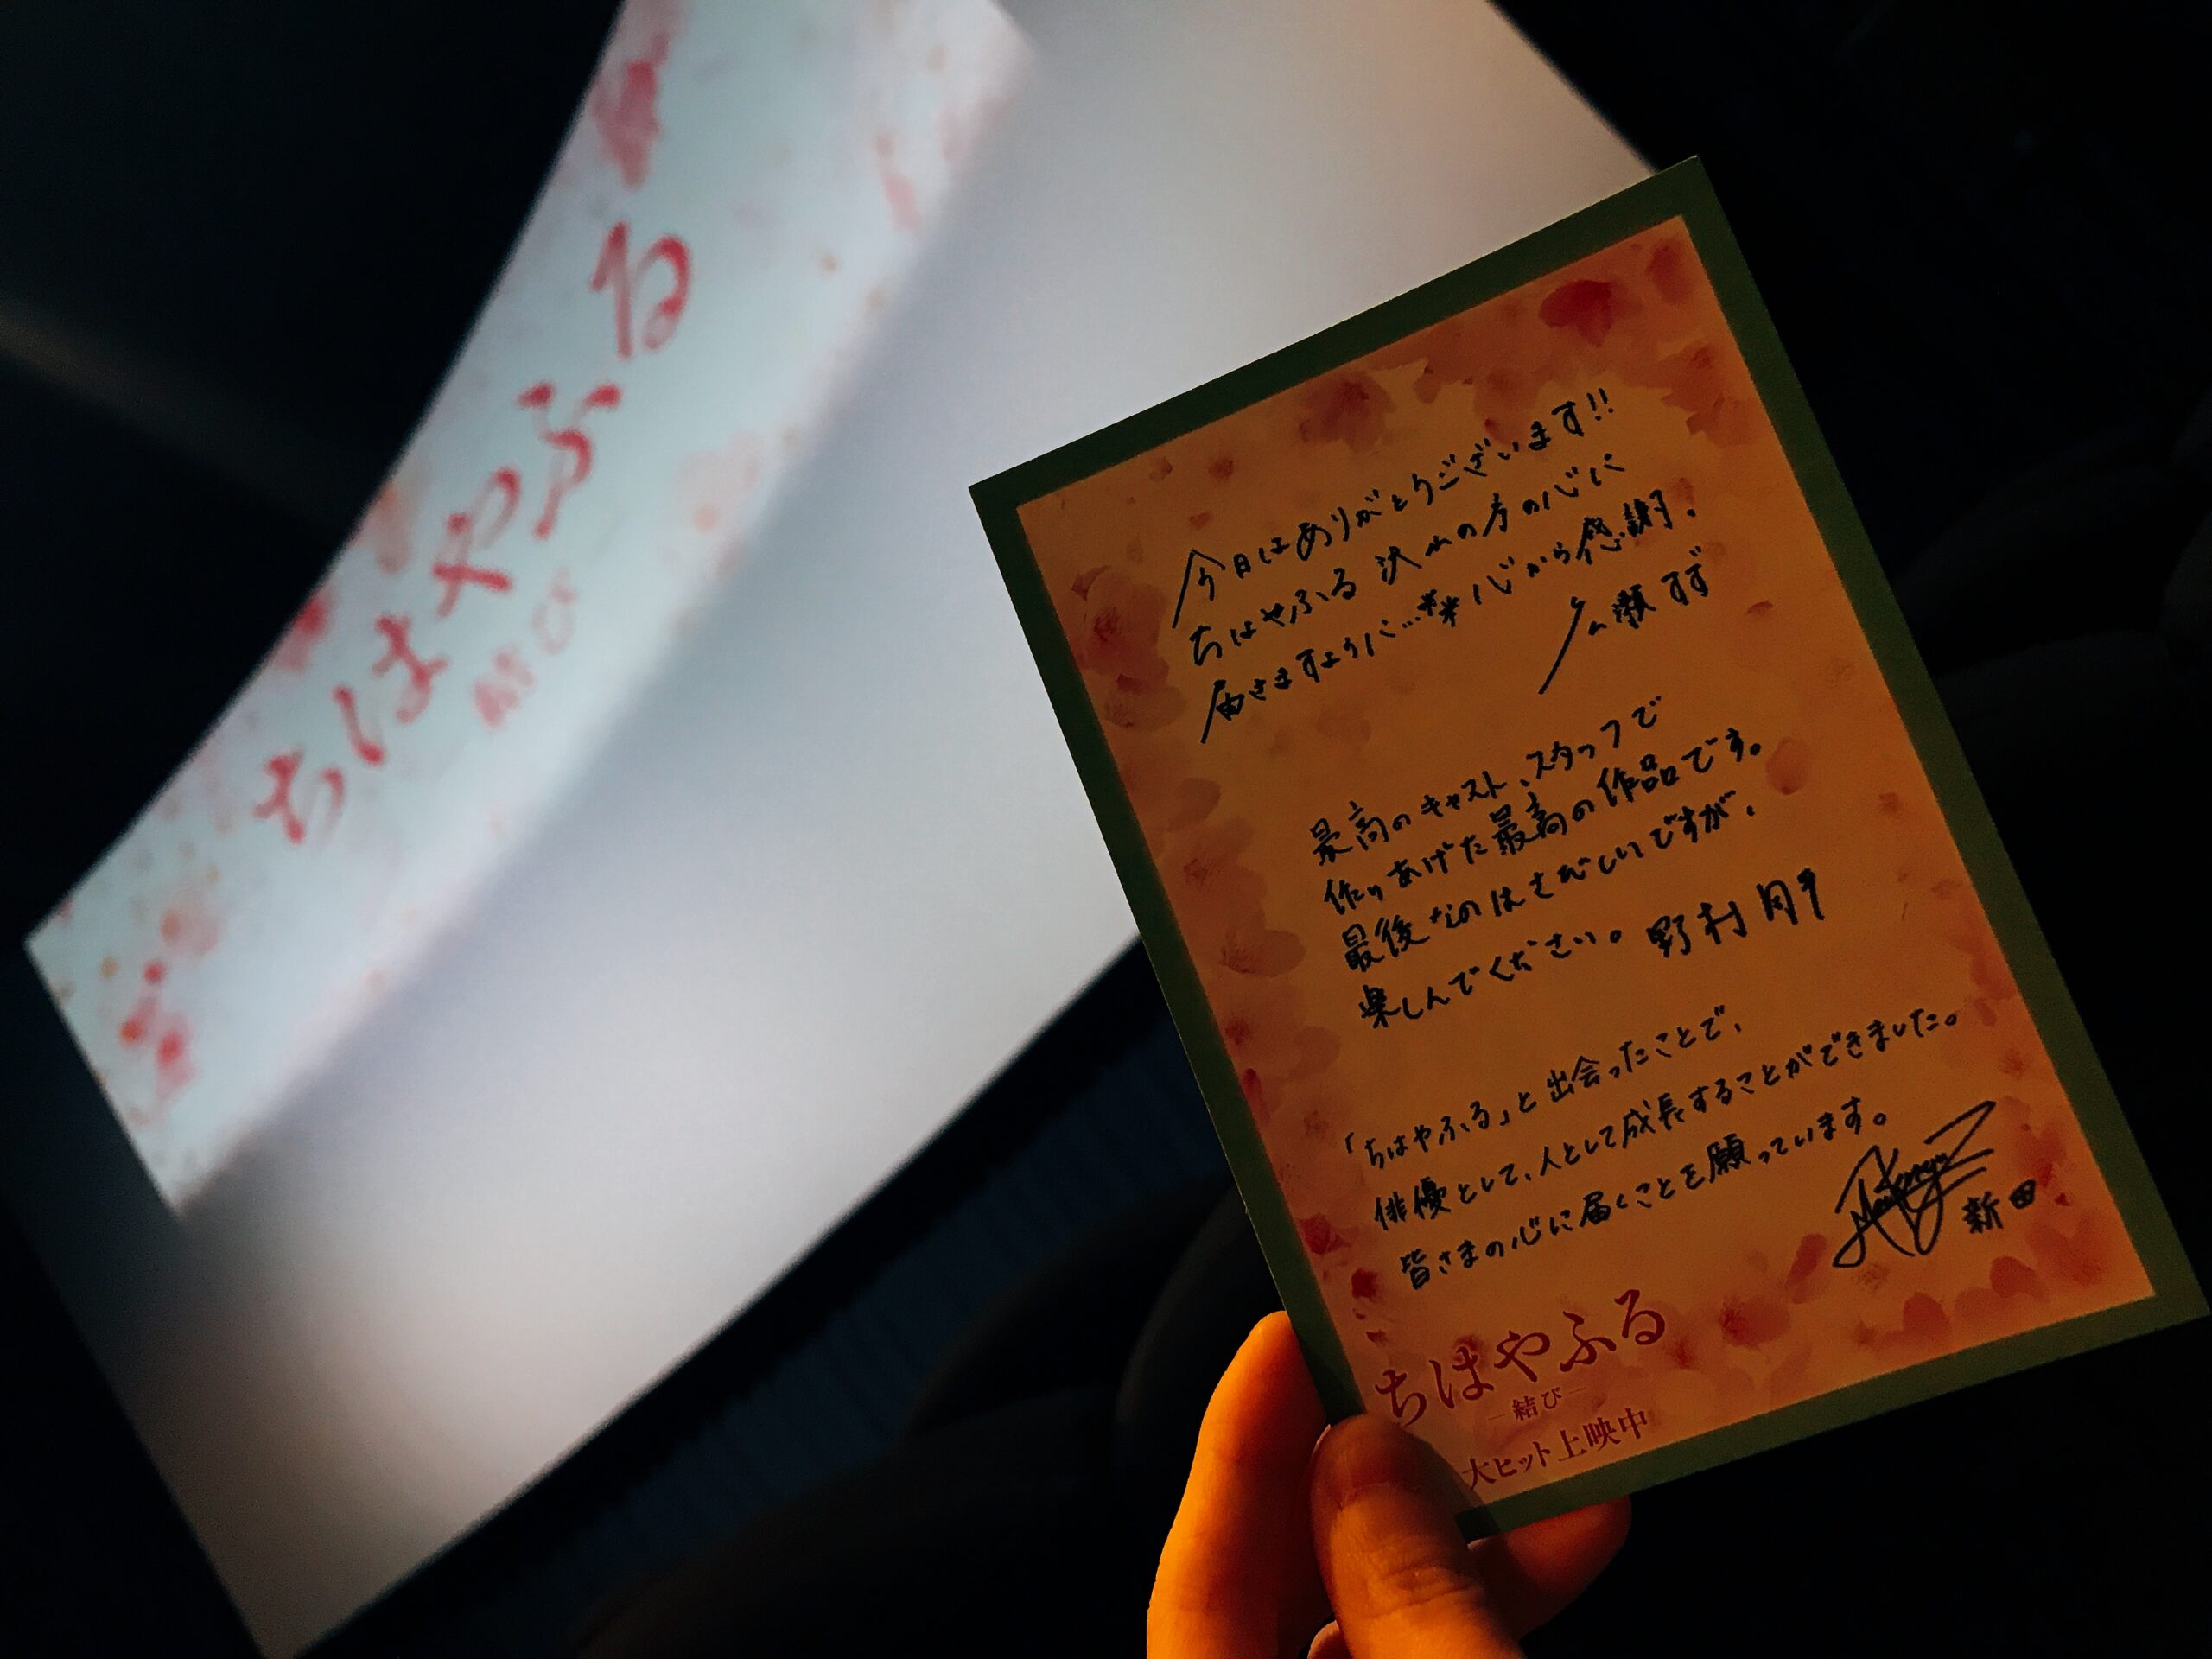 ちはやふる
今日はありがとうございます!!
ちはやふる 沢山の方の心に
届きますように…** 心から感謝!
広瀬すず
最高のキャスト、スタッフで
作りあげた最高の作品です。
最後なのはさびしいですが、
楽しんでください。 野村周平
「ちはやふる」と出会ったことで、
俳優として、人として成長することができました。
皆さまの心に届くことを願っています。
新田
ちはやふる
ー結びー
大ヒット上映中